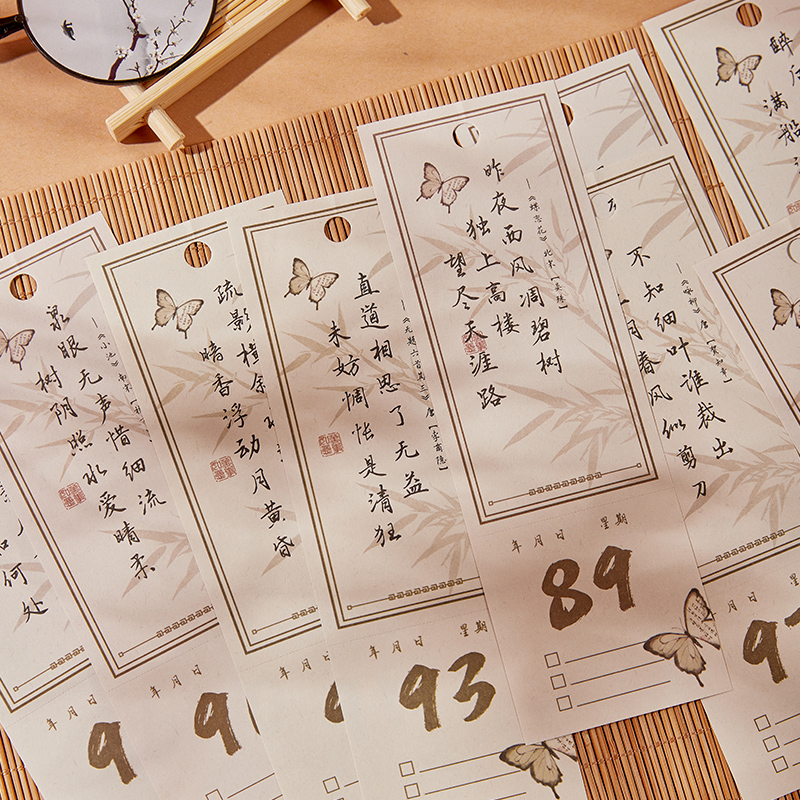 何处
—《小池》南宋
泉眼无声惜细流
树阴照水爱晴柔
年 月 日
9
疏影横斜
暗香浮动月黄昏
年 月 日
9
—《无题六首其三》唐【李商隐】
直道相思了无益
未妨惆怅是清狂
年 月 日 星期
93
—《蝶恋花》北宋【晏殊】
昨夜西风凋碧树
独上高楼
望尽天涯路
年 月 日 星期
89
—《咏柳》唐【贺知章】
不知细叶谁裁出
月春风似剪刀
月 日
9
醉后
满船